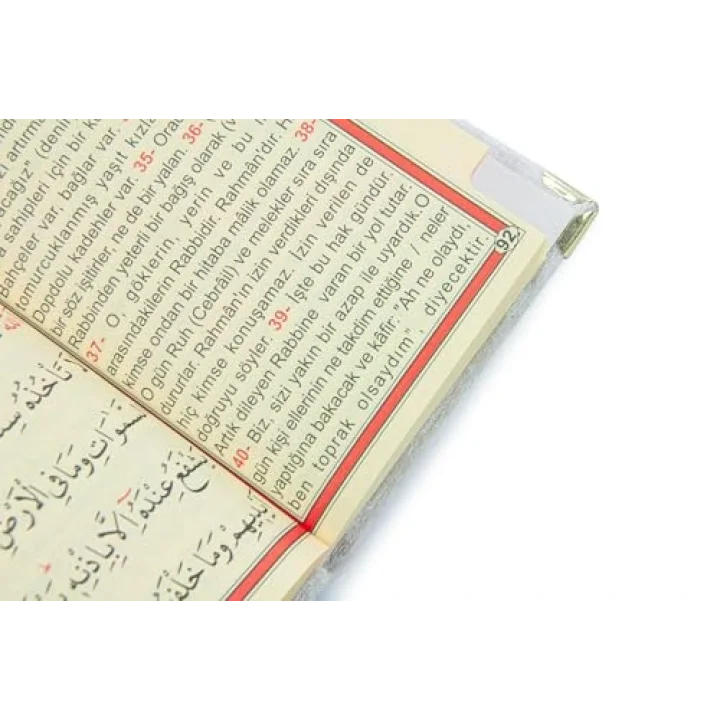 zi artırma
acağız" (denir
a sahipleri için bir
Bahçeler var, bağlar var.
tomurcuklanmış yaşıt kızla
Dopdolu kadehler var. 35- Orad
bir söz işitirler, ne de bir yalan. 36-
Rabbinden yeterli bir bağış olarak (v
37- O, göklerin, yerin ve bu
arasındakilerin Rabbidir. Rahmân'dır. H
kimse ondan bir hitaba mâlik olamaz. 38-
O gün Ruh (Cebrâîl) ve melekler sıra sıra
dururlar. Rahmân'ın izin verdikleri dışında
hiç kimse konuşamaz. İzin verilen de
doğruyu söyler. 39- İşte bu hak gündür.
Artık dileyen Rabbine varan bir yol tutar.
40- Biz, sizi yakın bir azap ile uyardık.O
gün kişi ellerinin ne takdim ettiğine / neler
yaptığına bakacak ve kâfir: "Ah ne olaydı,
ben toprak olsaydım", diyecektir.
92
تَأْخُذُهُ سِنَ
السَّمٰوَاتِ وَمَا فِي الْاَرْضِ
يَشْفَعُ عِنْدَهُٓ اِلَّا بِاِذْنِه۪
اَيْد۪يهِمْ وَمَا خَلْفَ